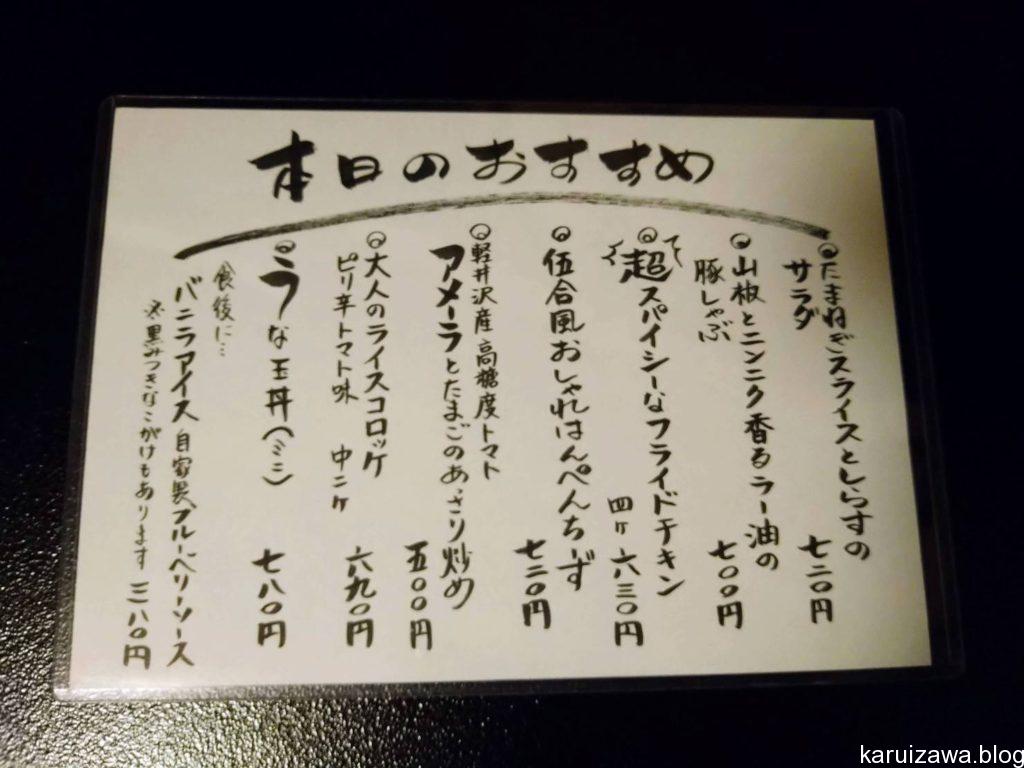 本日のおすすめ
たまねぎスライスとしらすの
サラダ
七二〇円
山椒とニンニク香るラー油の
豚しゃぶ
七〇〇円
超スパイシーなフライドチキン
四ヶ 六三〇円
伍合風おしゃれはんぺんちーず
七二〇円
軽井沢産高糖度トマト
アメーラとたまごのあっさり炒め
五〇〇円
大人のライスコロッケ
ピリ辛トマト味 中二ヶ
六九〇円
うな玉丼(ミニ)
七八〇円
食後に…
バニラアイス 自家製ブルーベリーソース
※黒みつきなこがけもあります 三八〇円
karuizawa.blog